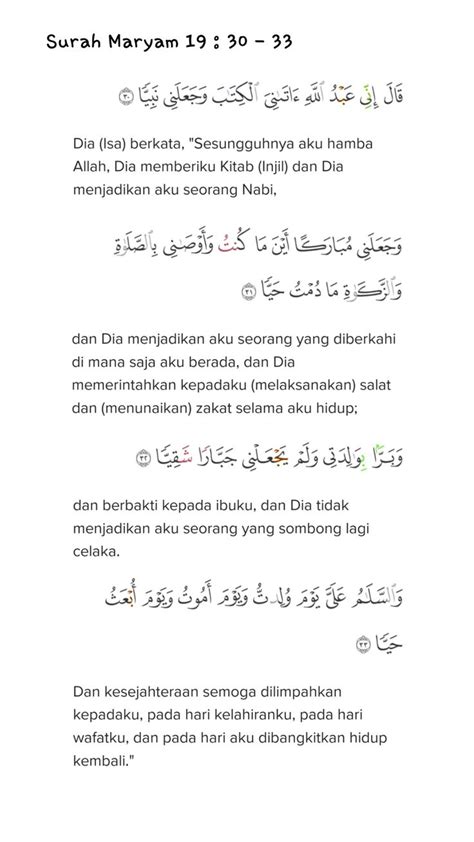 Surah Maryam 19 : 30 - 33
قَالَ إِنِّي عَبْدُ ٱللَّهِ ءَاتَىٰنِيَ ٱلْكِتَٰبَ وَجَعَلَنِي نَبِيًّا ٣٠
Dia (Isa) berkata, "Sesungguhnya aku hamba
Allah, Dia memberiku Kitab (Injil) dan Dia
menjadikan aku seorang Nabi,
وَجَعَلَنِي مُبَارَكًا أَيْنَ مَا كُنتُ وَأَوْصَٰنِي بِٱلصَّلَوٰةِ
وَٱلزَّكَوٰةِ مَا دُمْتُ حَيًّا ٣١
dan Dia menjadikan aku seorang yang diberkahi
di mana saja aku berada, dan Dia
memerintahkan kepadaku (melaksanakan) salat
dan (menunaikan) zakat selama aku hidup;
وَبَرًّۢا بِوَٰلِدَتِي وَلَمْ يَجْعَلْنِي جَبَّارًا شَقِيًّا ٣٢
dan berbakti kepada ibuku, dan Dia tidak
menjadikan aku seorang yang sombong lagi
celaka.
وَٱلسَّلَٰمُ عَلَيَّ يَوْمَ وُلِدتُّ وَيَوْمَ أَمُوتُ وَيَوْمَ أُبْعَثُ
حَيًّا ٣٣
Dan kesejahteraan semoga dilimpahkan
kepadaku, pada hari kelahiranku, pada hari
wafatku, dan pada hari aku dibangkitkan hidup
kembali."